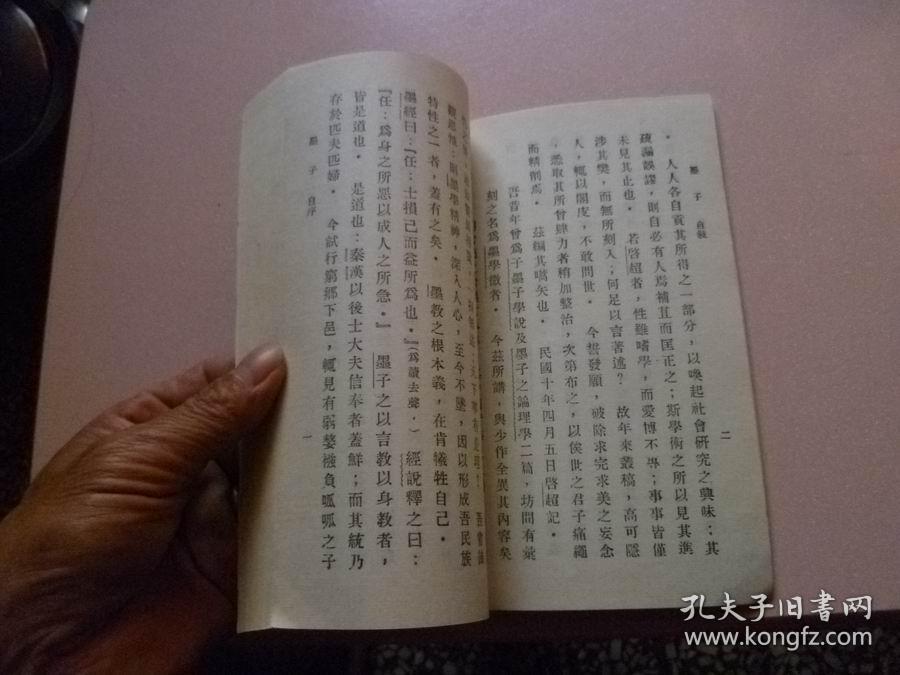 墨子 自敍 二
・人人各自貢其所得之一部分，以喚起社會硏究之興味；其
疏漏誤謬，則自必有人焉補苴而匡正之；斯學術之所以見其進
未見其止也・ 若啓超者，性雖嗜學，而愛博不專；事事皆僅
涉其樊，而無所刻入；何足以言著述？ 故年來叢稿，高可隱
人，輒以閣皮，不敢問世・ 今誓發願，破除求完求美之妄念
，悉取其所曾肆力者稍加整治，次第布之，以俟世之君子痛繩
而精削焉・ 茲編其嚆矢也・ 民國十年四月五日啓超記・
吾昔年曾爲子墨子學說及墨子之論理學二篇，坊間有彙
刻之名爲墨學微者・ 今茲所講，與少作全異其內容矣
觀思惟：則墨學精神，深入人心，至今不墜，因以形成吾民族
特性之一者，蓋有之矣・ 墨敎之根本義，在肯犧牲自己・
墨經曰：『任：士損己而益所爲也・』（爲讀去聲・） 經說釋之曰：
『任：爲身之所惡以成人之所急・』 墨子之以言敎以身敎者，
皆是道也・ 是道也：秦漢以後士大夫信奉者蓋鮮；而其統乃
存於匹夫匹婦・ 今試行窮鄉下邑，輒見有弱嫠襁負呱呱之子
墨子 自序 一
孔夫子旧书网
www.kongfz.com